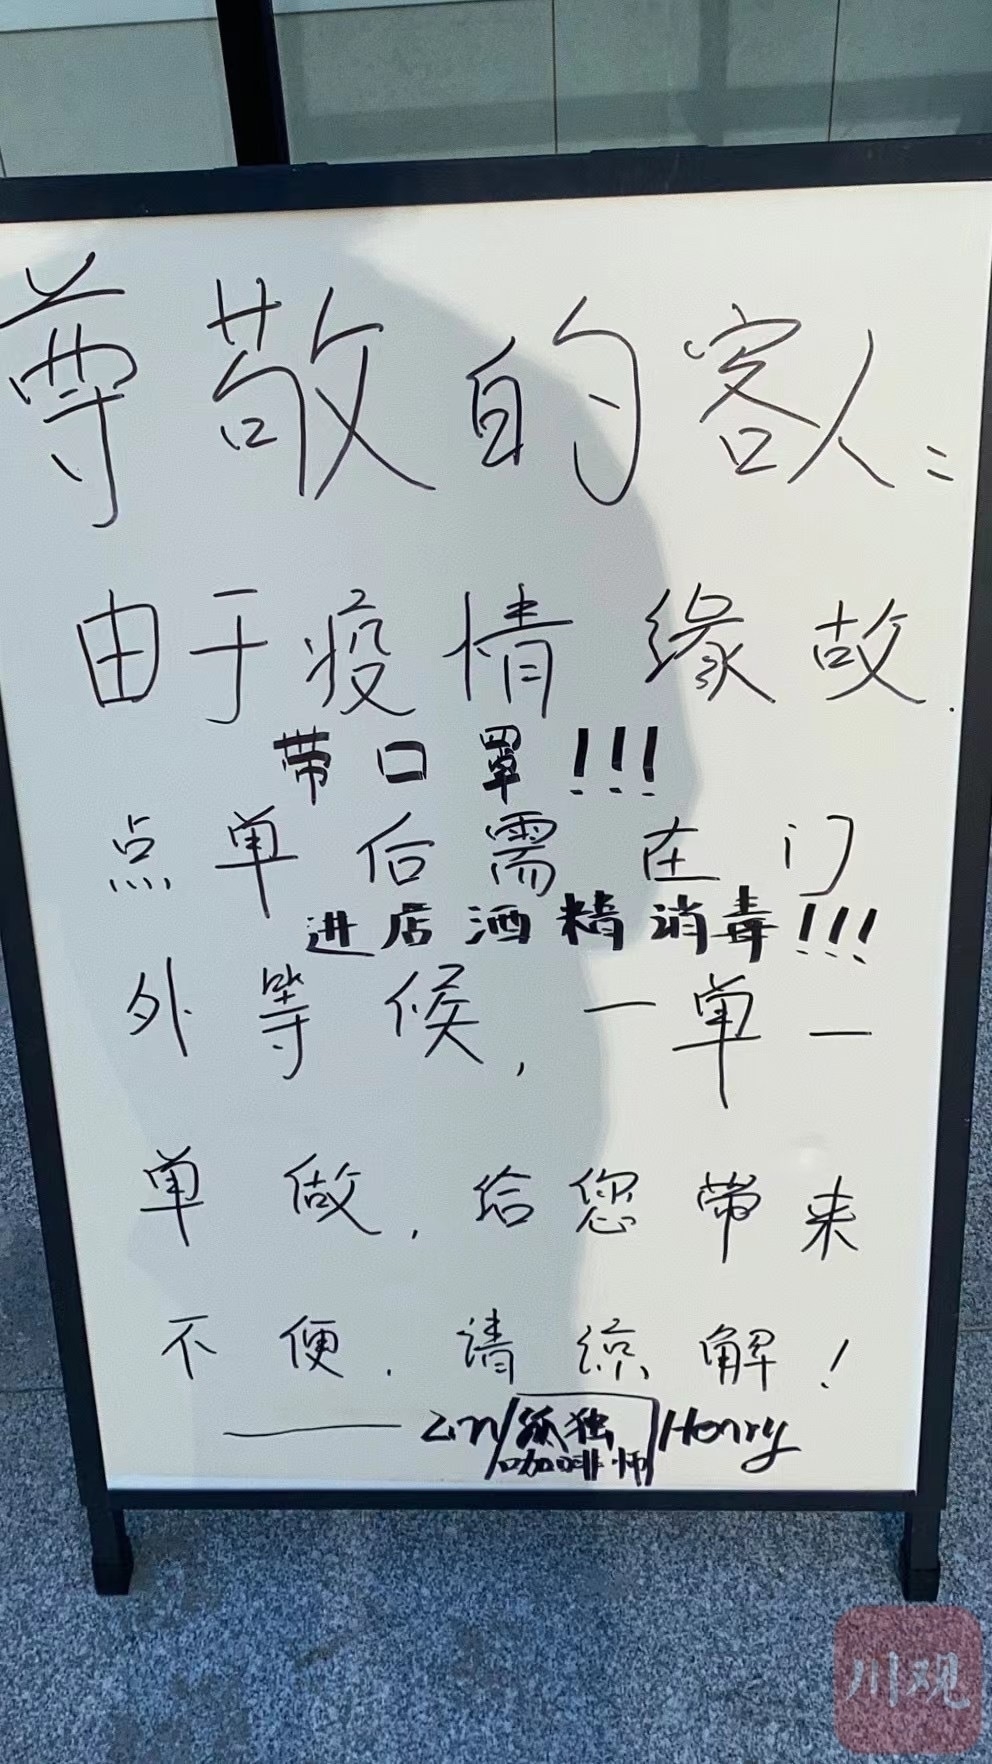 尊敬的客人：
由于疫情缘故，
带口罩!!!
点单后需在门
进店酒精消毒!!!
外等候，一单一
单做，给您带来
不便，请谅解！
——Lin/孤独/Henry
咖啡师
川观